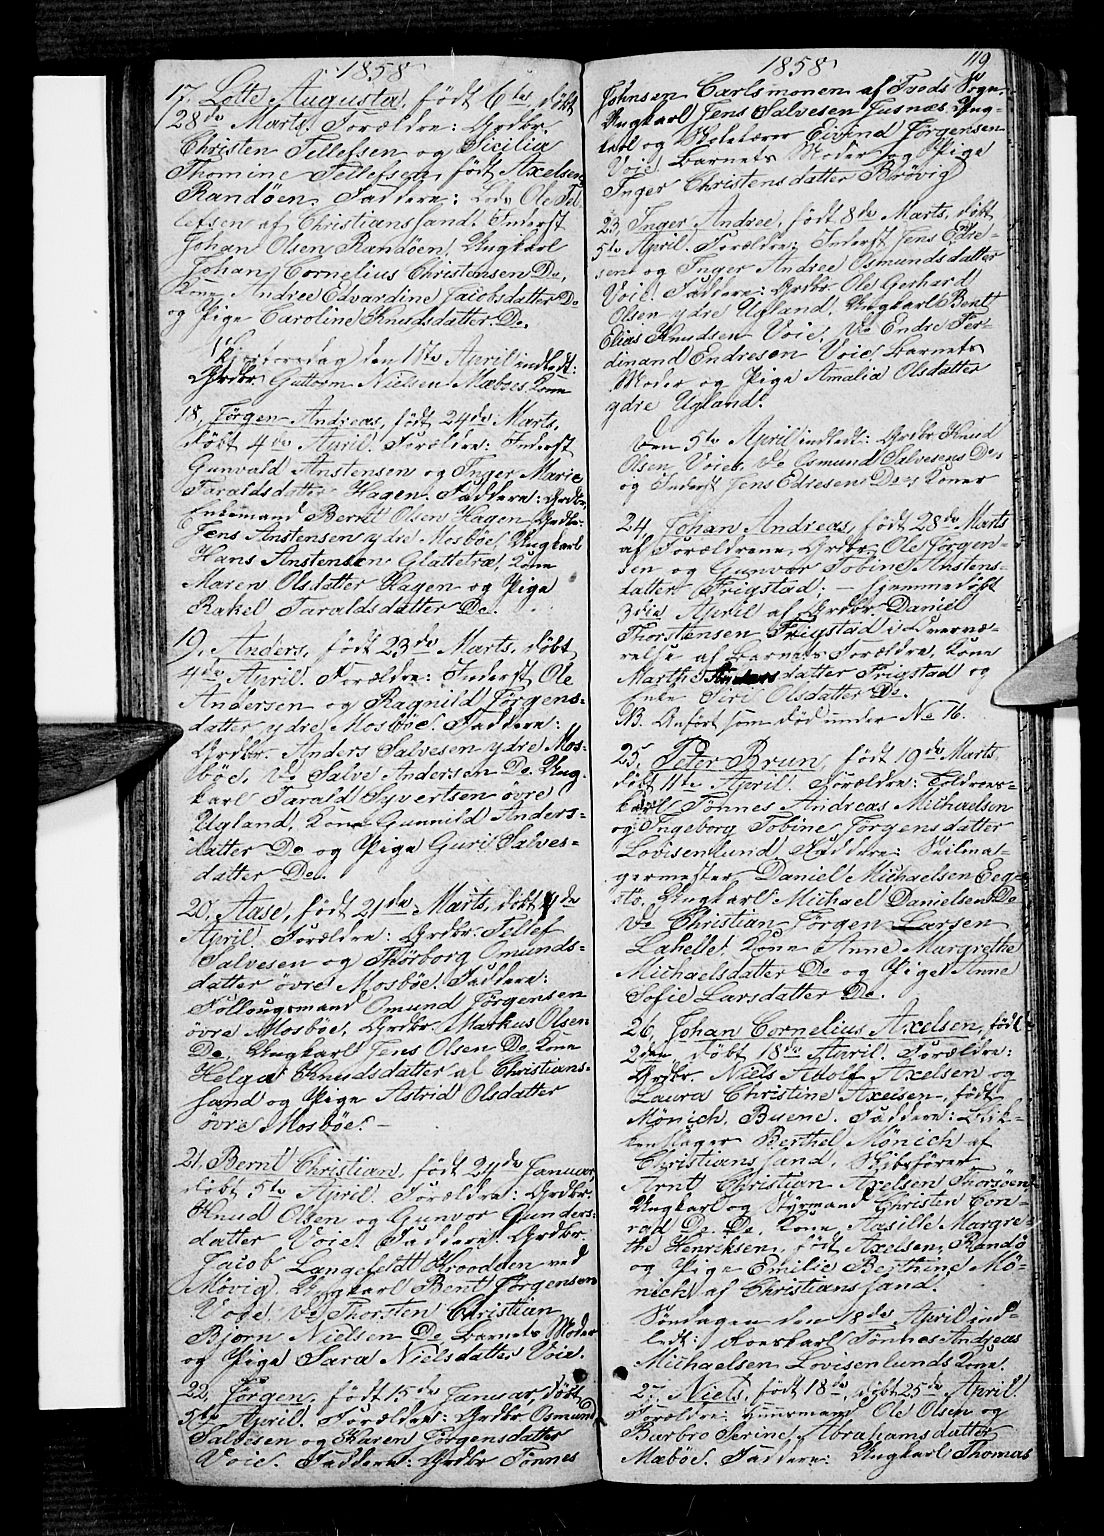 1858
17. Lotte Augusta, født 6te, døbt
28de Marts. Forældre: Grdbr.
Christen Tellefsen og Sicilia
Thomine Tellefsen, født Axelsen
Randøen. Faddere: Lods Ole Tel-
lefsen af Christianssand. Inderst
Johan Olsen Randøen, Ungkarl
Johan Cornelius Christensen De,
Kone Andree Edvardine Jacobsdatter De
og Pige Caroline Knudsdatter De.
Skjertorsdag den 1ste April indledt:
Grdbr. Guttorm Nielsen Mæbøes Kone
18. Jørgen Andreas, født 24de Marts,
døbt 4de April. Forældre: Inderst
Gunvald Anstensen og Inger Marie
Taraldsdatter Hagen. Faddere: Grdbr.
Enkemand Bernt Olsen Hagen, Grdbr.
Jens Anstensen ydre Mosbøe, Ungkarl
Hans Anstensen Glattetræ, Kone
Maren Olsdatter Hagen og Pige
Rakel Taraldsdatter De.
19. Anders, født 23de Marts, døbt
4de April. Forældre: Inderst Ole
Andersen og Ragnild Jørgens-
datter ydre Mosbøe. Faddere:
Grdbr. Anders Salvesen ydre Mos-
bøe, Do Salve Andersen De, Ung-
karl Tarald Syvertsen øvre
Ugland, Kone Gunnild Anders-
datter De og Pige Guri Salves-
datter De.
20. Aase, født 21de Marts, døbt 4de
April. Forældre: Grdbr. Tellef
Salvesen og Thorborg Omunds-
datter øvre Mosbøe. Faddere:
Follougsmand Omund Jørgensen
øvre Mosbøe, Grdbr. Markus Olsen
De, Ungkarl Jens Olsen De, Kone
Helga Knudsdatter af Christians-
sand og Pige Astrid Olsdatter
øvre Mosbøe.
21. Bernt Christian, født 24de Januar,
døbt 5te April. Forældre: Grdbr.
Knud Olsen og Gunvor Gunders-
datter Voie. Faddere: Grdbr.
Jacob Langefeldt Krodden ved
Møvig, Ungkarl Bent Jørgensen
Voie, Do Thorsten Christian
Bjørn Nielsen De, Barnets Moder
og Pige Sara Nielsdatter Voie.
22. Jørgen, født 15de Januar, døbt
5te April. Forældre: Grdbr. Osmund
Salvesen og Karen Jørgensdatter
Voie. Faddere: Grdbr. Tønnes
1858
119
Johnsen Carlsmonen af Tveds Sogn,
Ungkarl Jens Salvesen Jusnæs, Ung-
karl og Eivind Jørgensen
Voie, Barnets Moder og Pige
Inger Christensdatter Brøvig
23. Inger Andree, født 8de Marts, døbt
5te April. Forældre: Inderst Jens Edre-
sen og Inger Andree Osmundsdatter
Voie. Faddere: Grdbr. Ole Gerhard
Olsen ydre Ugland, Ungkarl Bent
Elias Knudsen Voie, Do Endre Fer-
dinand Endresen Voie, Barnets
Moder og Pige Amalia Olsdatter
ydre Ugland.
Den 5te April indledt: Grdbr. Knud
Olsen Voies, Do Osmund Salvesens Des
og Inderst Jens Edresens Des Koner
24. Johan Andreas, født 28de Marts
af Forældrene, Grdbr. Ole Jørgen-
sen og Gunvor Tobine Anstens-
datter Frigstad; – hjemmedøbt
3die April af Grdbr. Daniel
Thorstensen Frigstad i Overvæ-
relse af Barnets Forældre, Kone
Marthe Andersdatter Frigstad og
Enke Siri Olsdatter De.
NB. Anført som død under No 16.
25. Peter Brun, født 19de Marts,
døbt 11te April. Forældre:
Tønnes Andreas Michaelsen
og Ingeborg Tobine Jørgensdatter
Lovisenlund. Faddere: Seilma-
germester Daniel Michaelsen Eeg-
sto, Ungkarl Michael Danielsen De
Do Christian Jørgen Larsen
Lahelle, Kone Anne Margrethe
Michaelsdatter De og Pige Anne
Sofie Larsdatter De.
26. Johan Cornelius Axelsen, født
2den, døbt 18de April. Forældre:
Grdbr. Niels Adolf Axelsen og
Laura Christine Axelsen, født
Mönich, Buene. Faddere: Blik-
kenslager Berthel Mönich af
Christianssand, Skibsfører
Arnt Christian Axelsen Thorsøen,
Ungkarl og Styrmand Christen Con-
rad De. De, Kone Aasille Margre-
the Henriksen, født Axelsen, Randø
og Pige Emilie Berthine Mö-
nich af Christianssand.
Søndagen den 18de April ind-
ledt: Tønnes Andreas
Michaelsen Lovisenlunds Kone.
27. Niels, født 18de, døbt 25de April.
Forældre: Huusmand Ole Olsen og
Barbro Serine Abrahamsdatter
Mæbøe. Faddere: Ungkarl Thomas